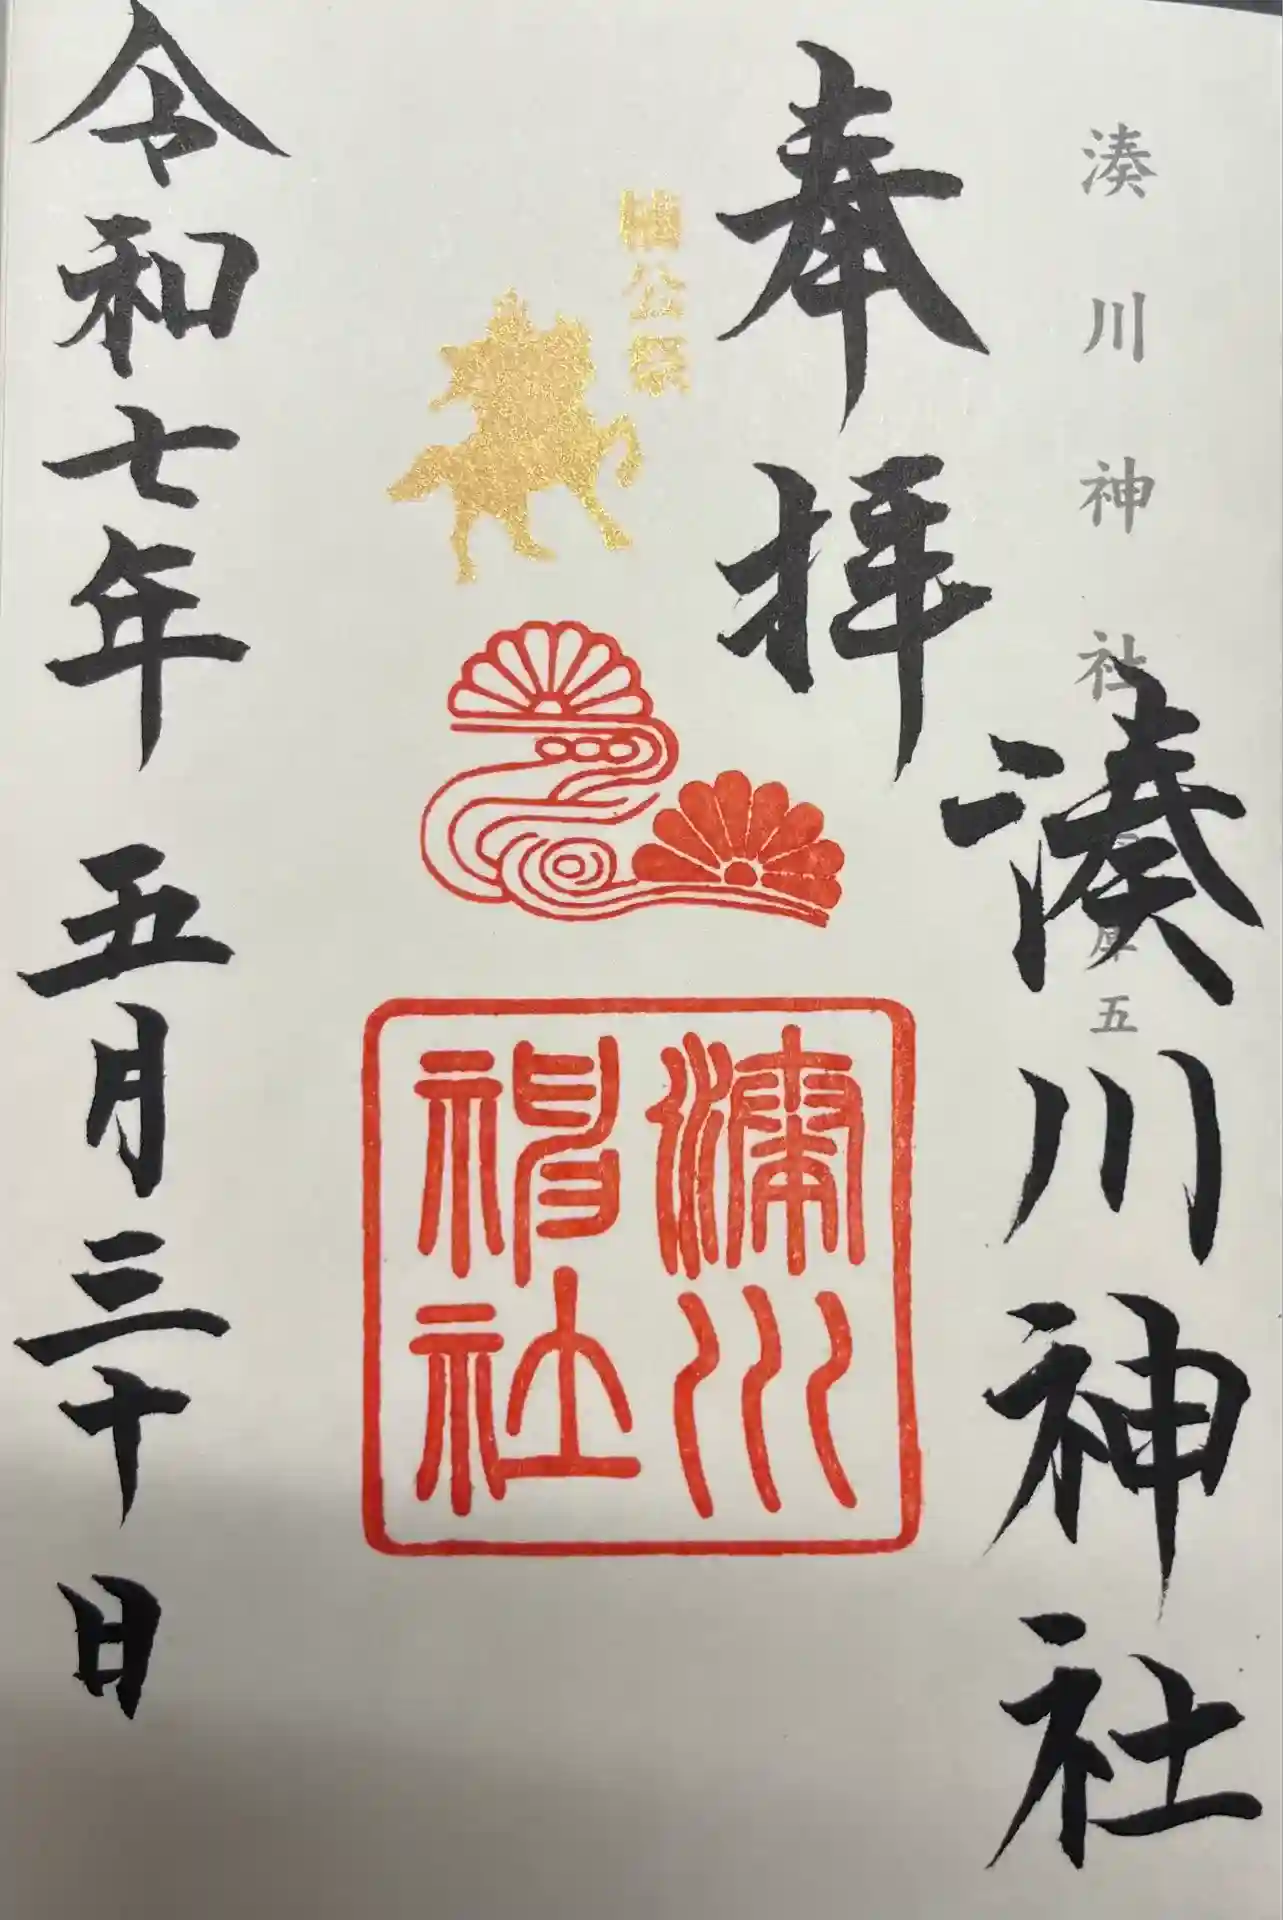 湊川神社
庫五
奉拝
湊川神社
楠公祭
湊川
神社
令和七年
五月三十日